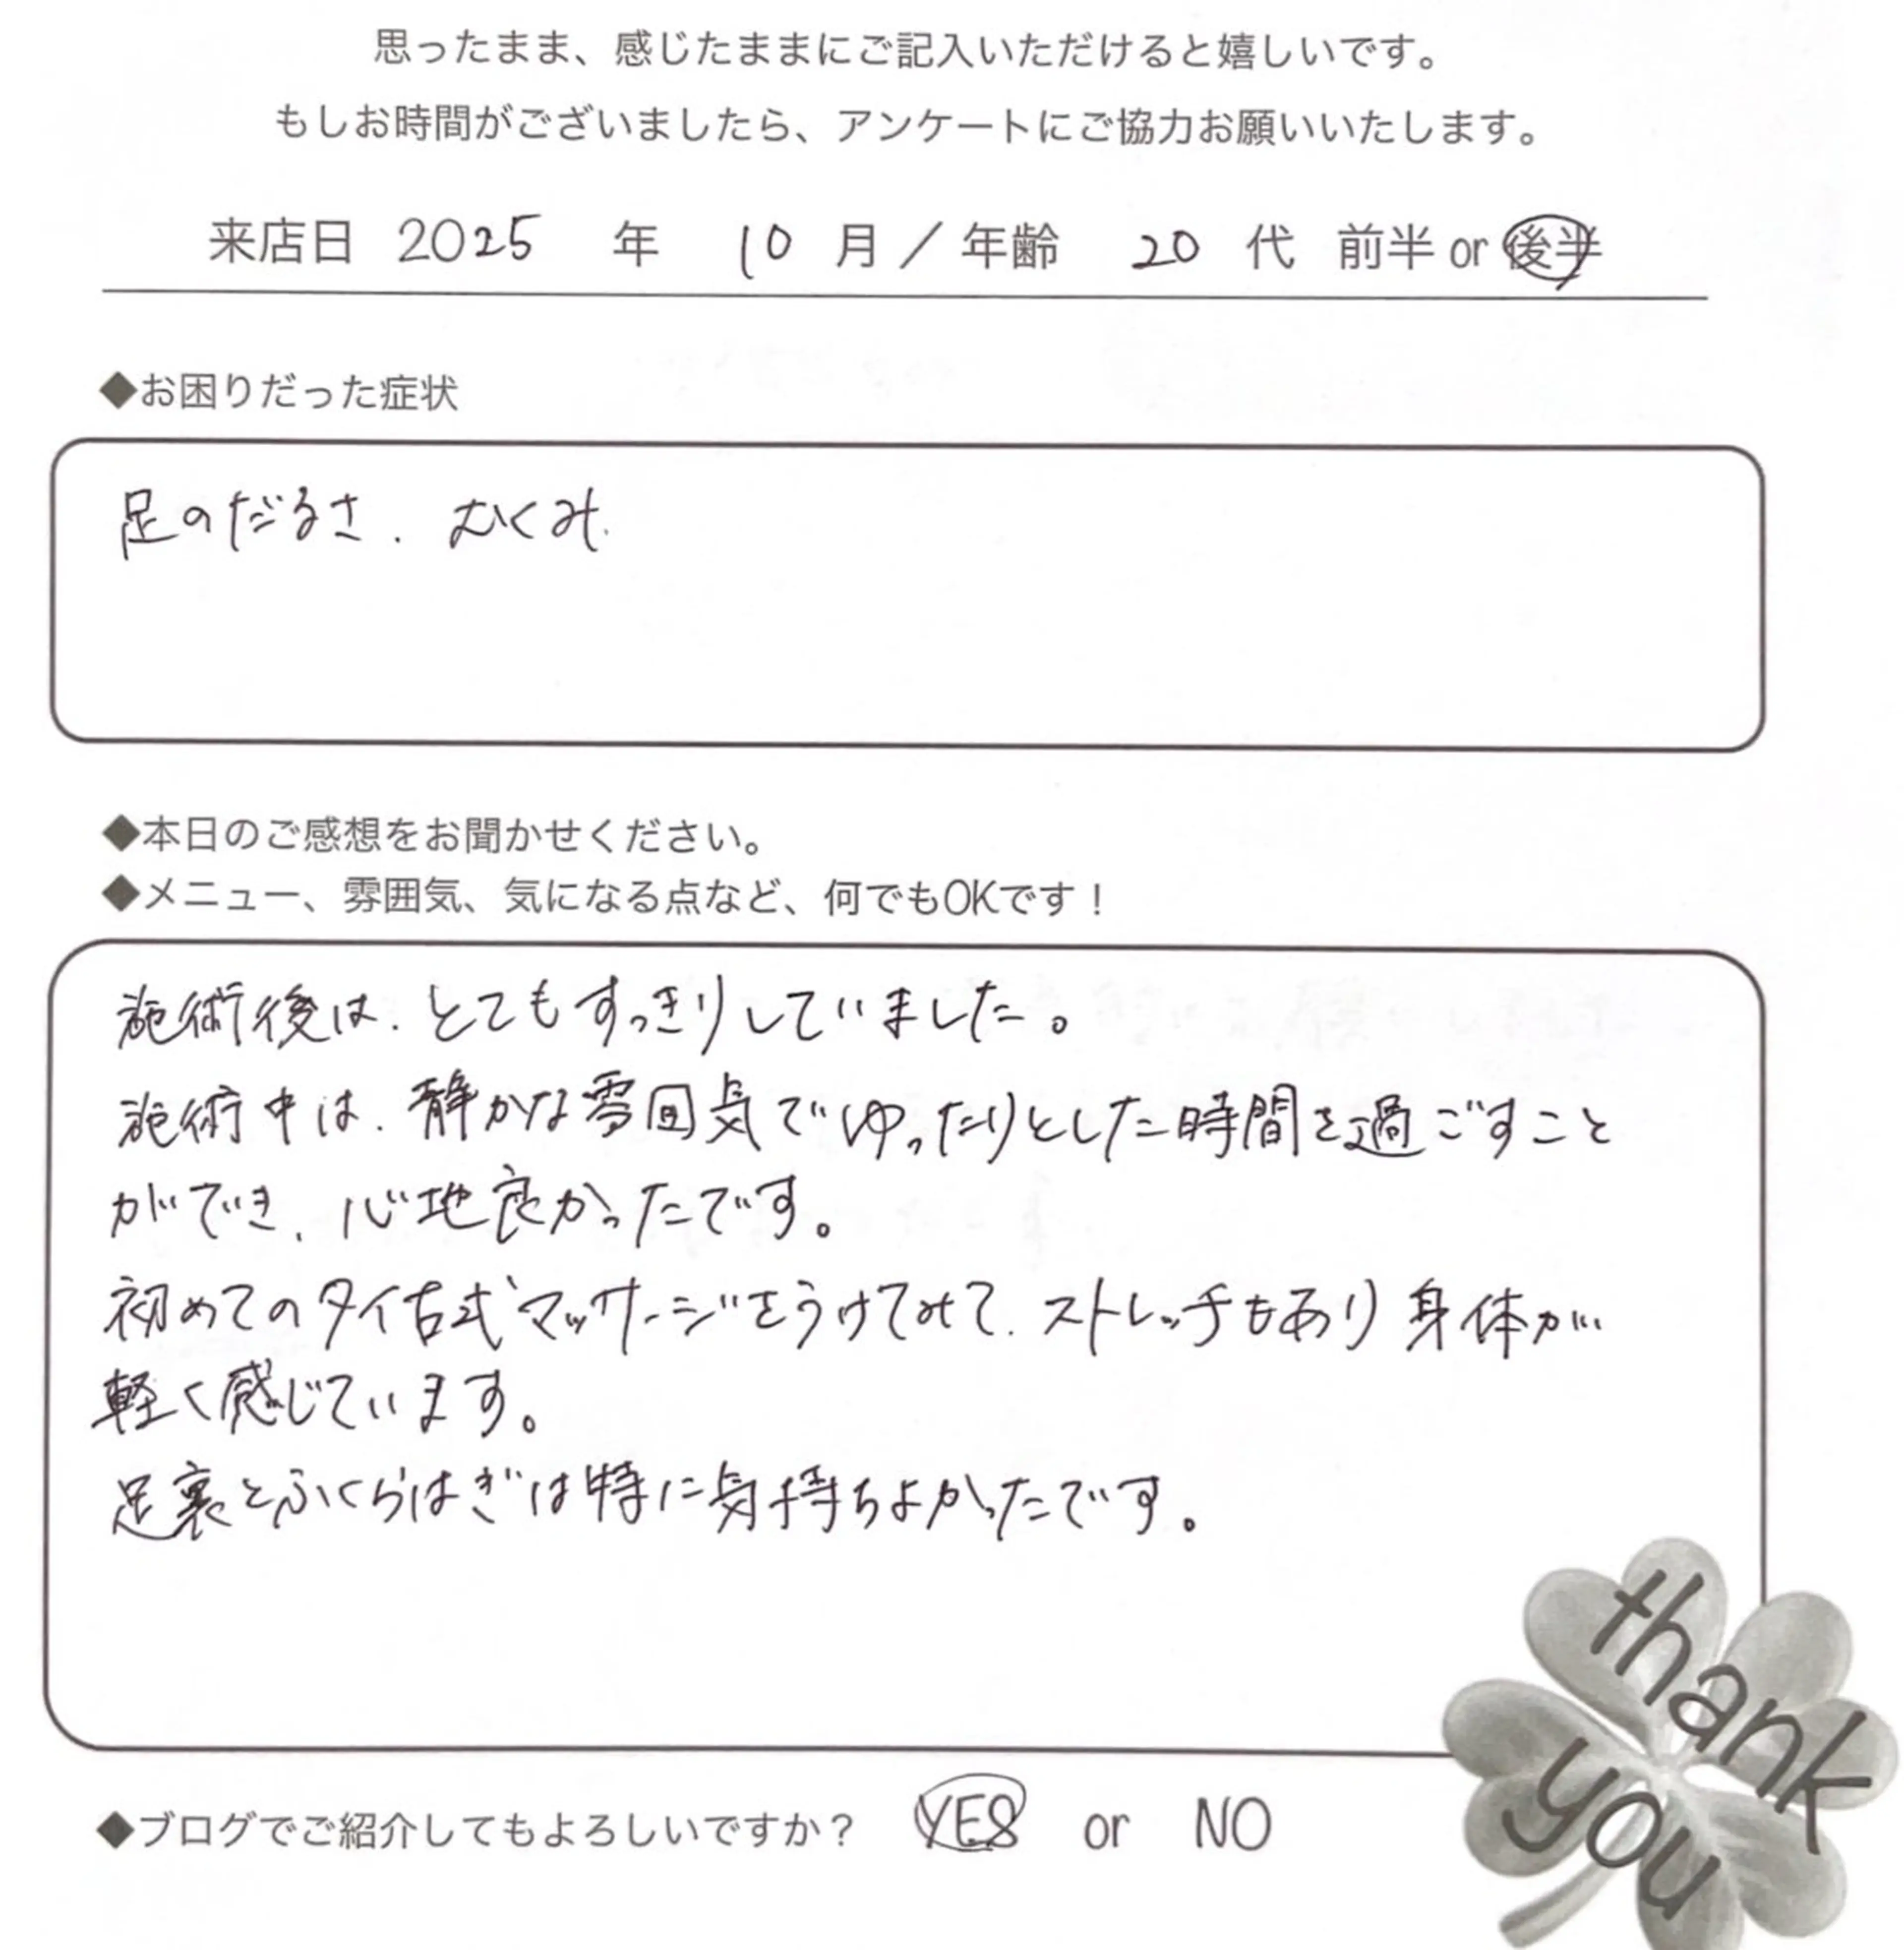 思ったまま、感じたままにご記入いただけると嬉しいです。
もしお時間がございましたら、アンケートにご協力お願いいたします。
来店日 2025 年 10 月 / 年齢 20 代 前半 or 後半
◆お困りだった症状
足のだるさ. むくみ.
◆本日のご感想をお聞かせください。
◆メニュー、雰囲気、気になる点など、何でもOKです！
施術後は. とてもすっきりしていました。
施術中は. 静かな雰囲気でゆったりとした時間を過ごすこと
ができ、心地良かったです。
初めてのタイ古式マッサージをうけてみて. ストレッチもあり身体が
軽く感じています。
足裏とふくらはぎは特に気持ちよかったです。
◆ブログでご紹介してもよろしいですか？ YES or NO
thank
you